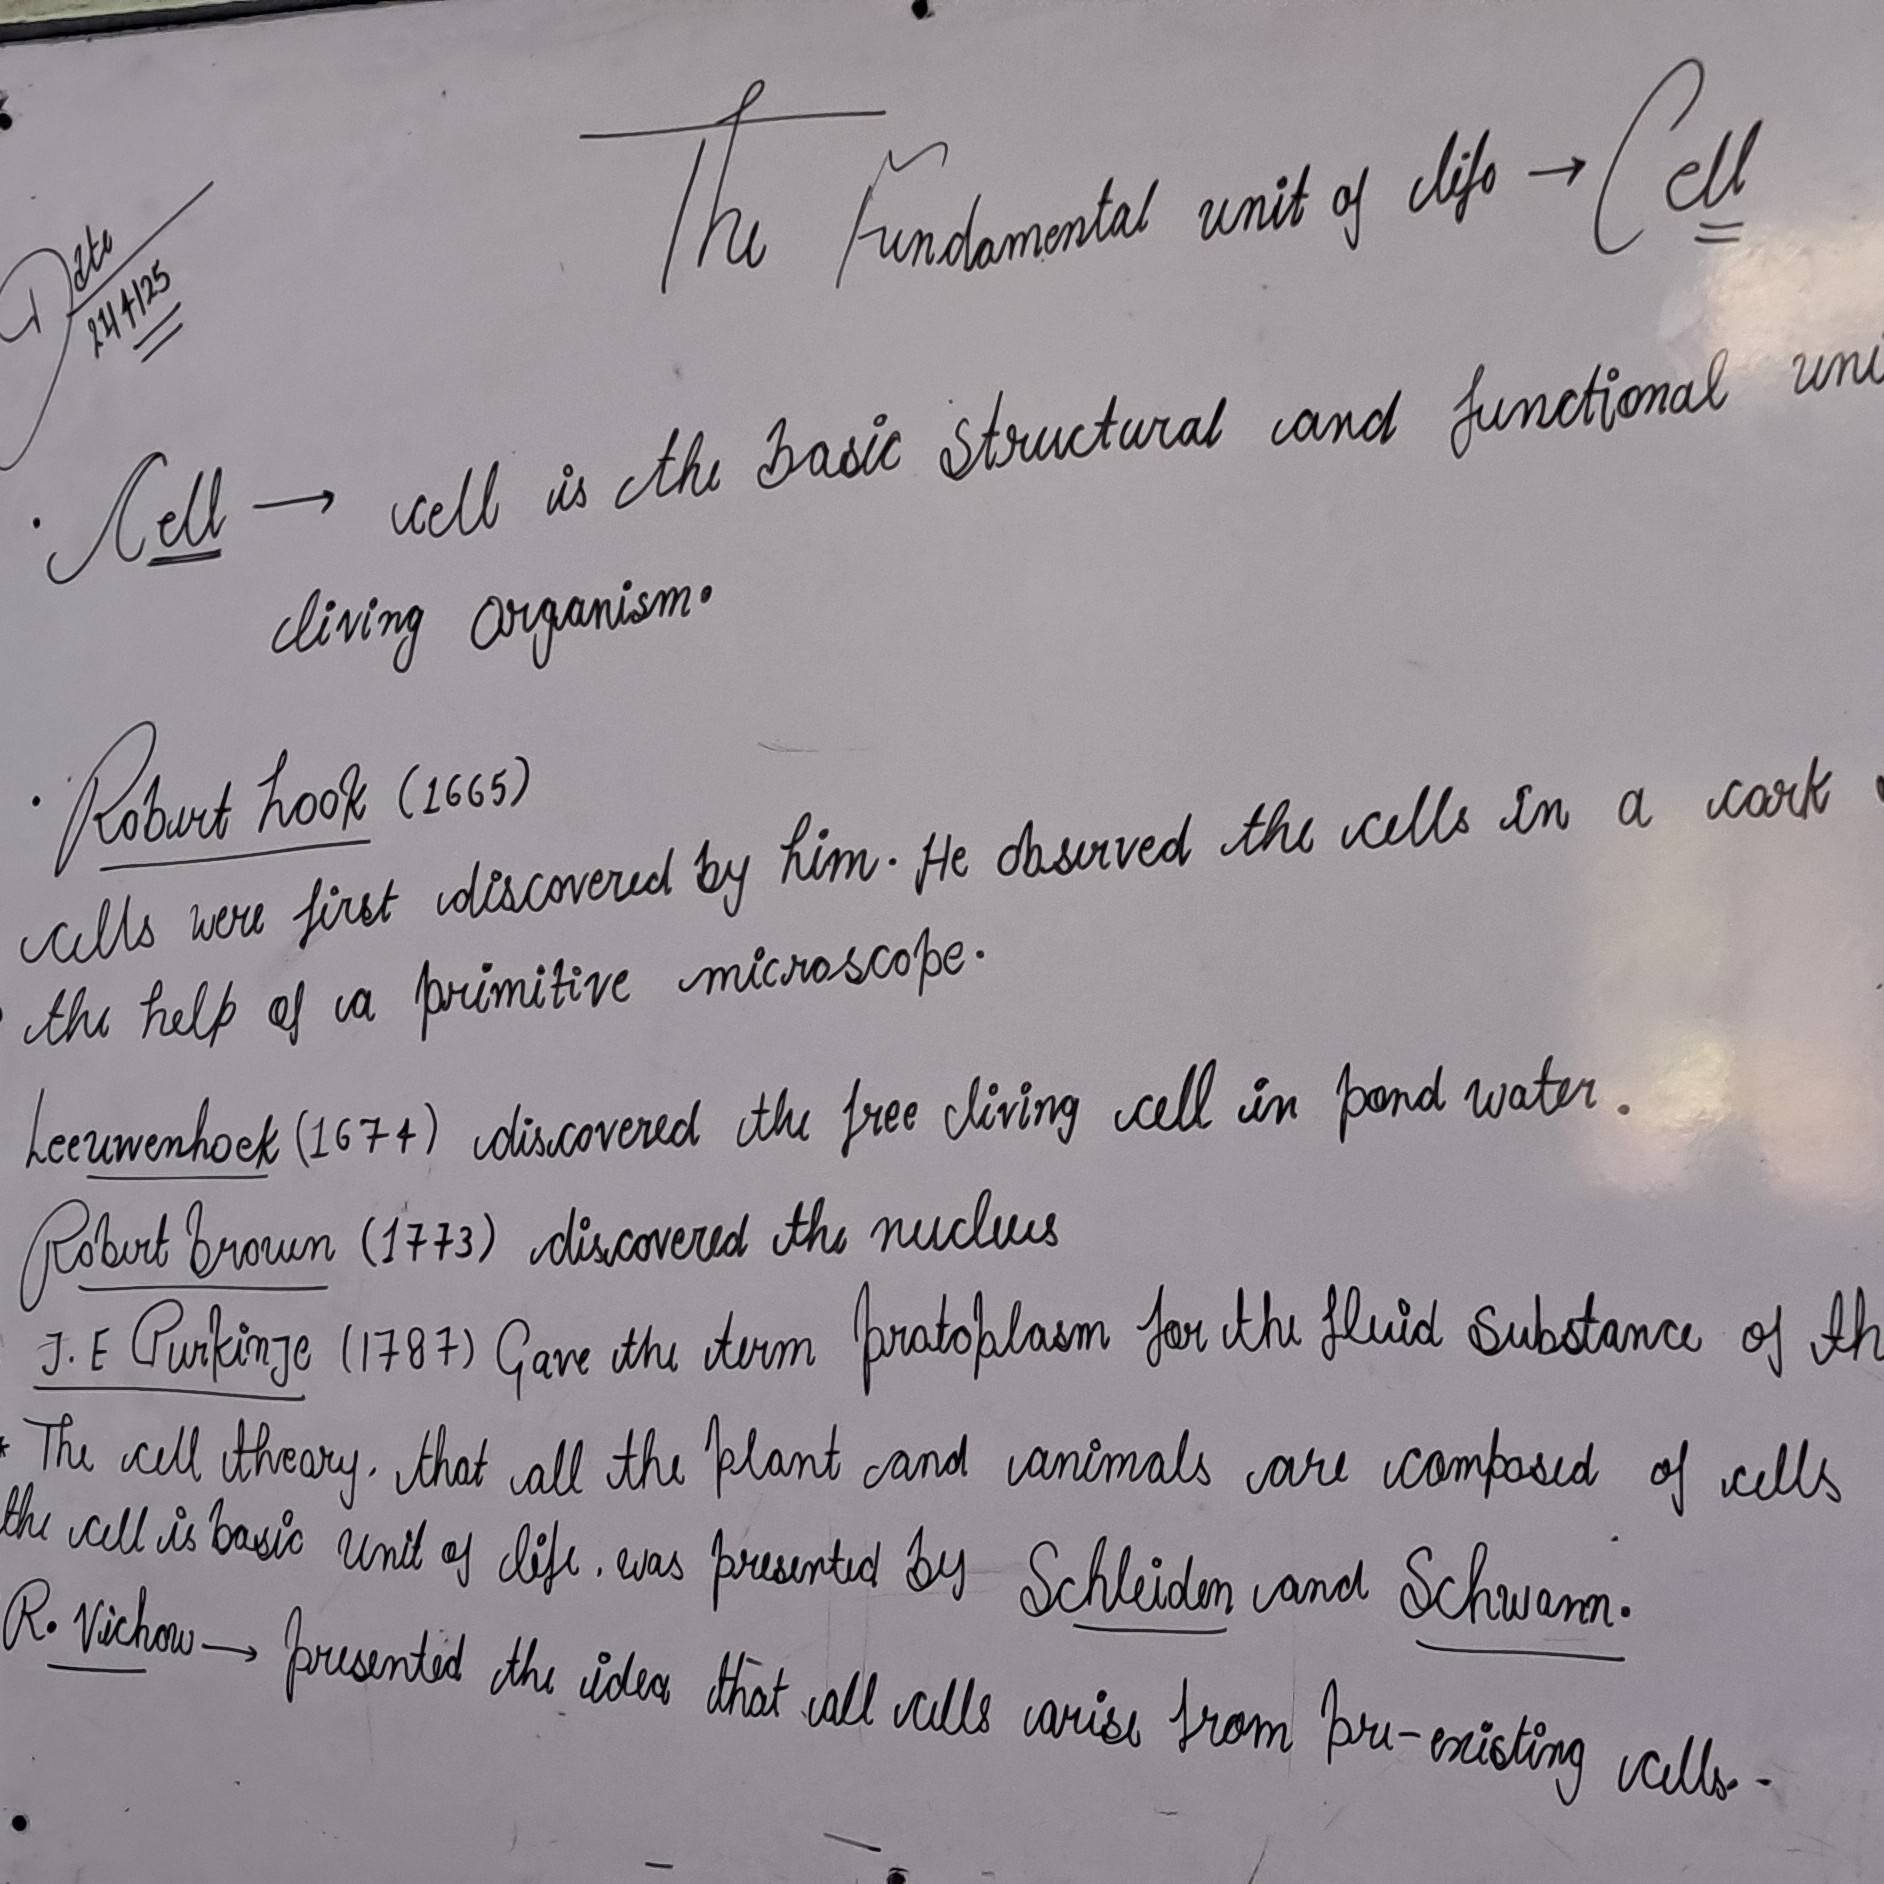 The Fundamental unit of life → Cell
Date
24/4/25
· Cell → cell is the basic structural and functional uni
living organism.
· Robert hook (1665)
cells were first discovered by him. He observed the cells in a cork
the help of a primitive microscope.
Leeuwenhoek (1674) discovered the free living cell in pond water.
Robert Brown (1773) discovered the nucleus
J. E Purkinje (1787) Gave the term protoplasm for the fluid substance of th
* The cell theory. that all the plant and animals are composed of cells
the cell is basic unit of life. was presented by Schleiden and Schwann.
R. Vichow → presented the idea that all cells arise from pre-existing cells.